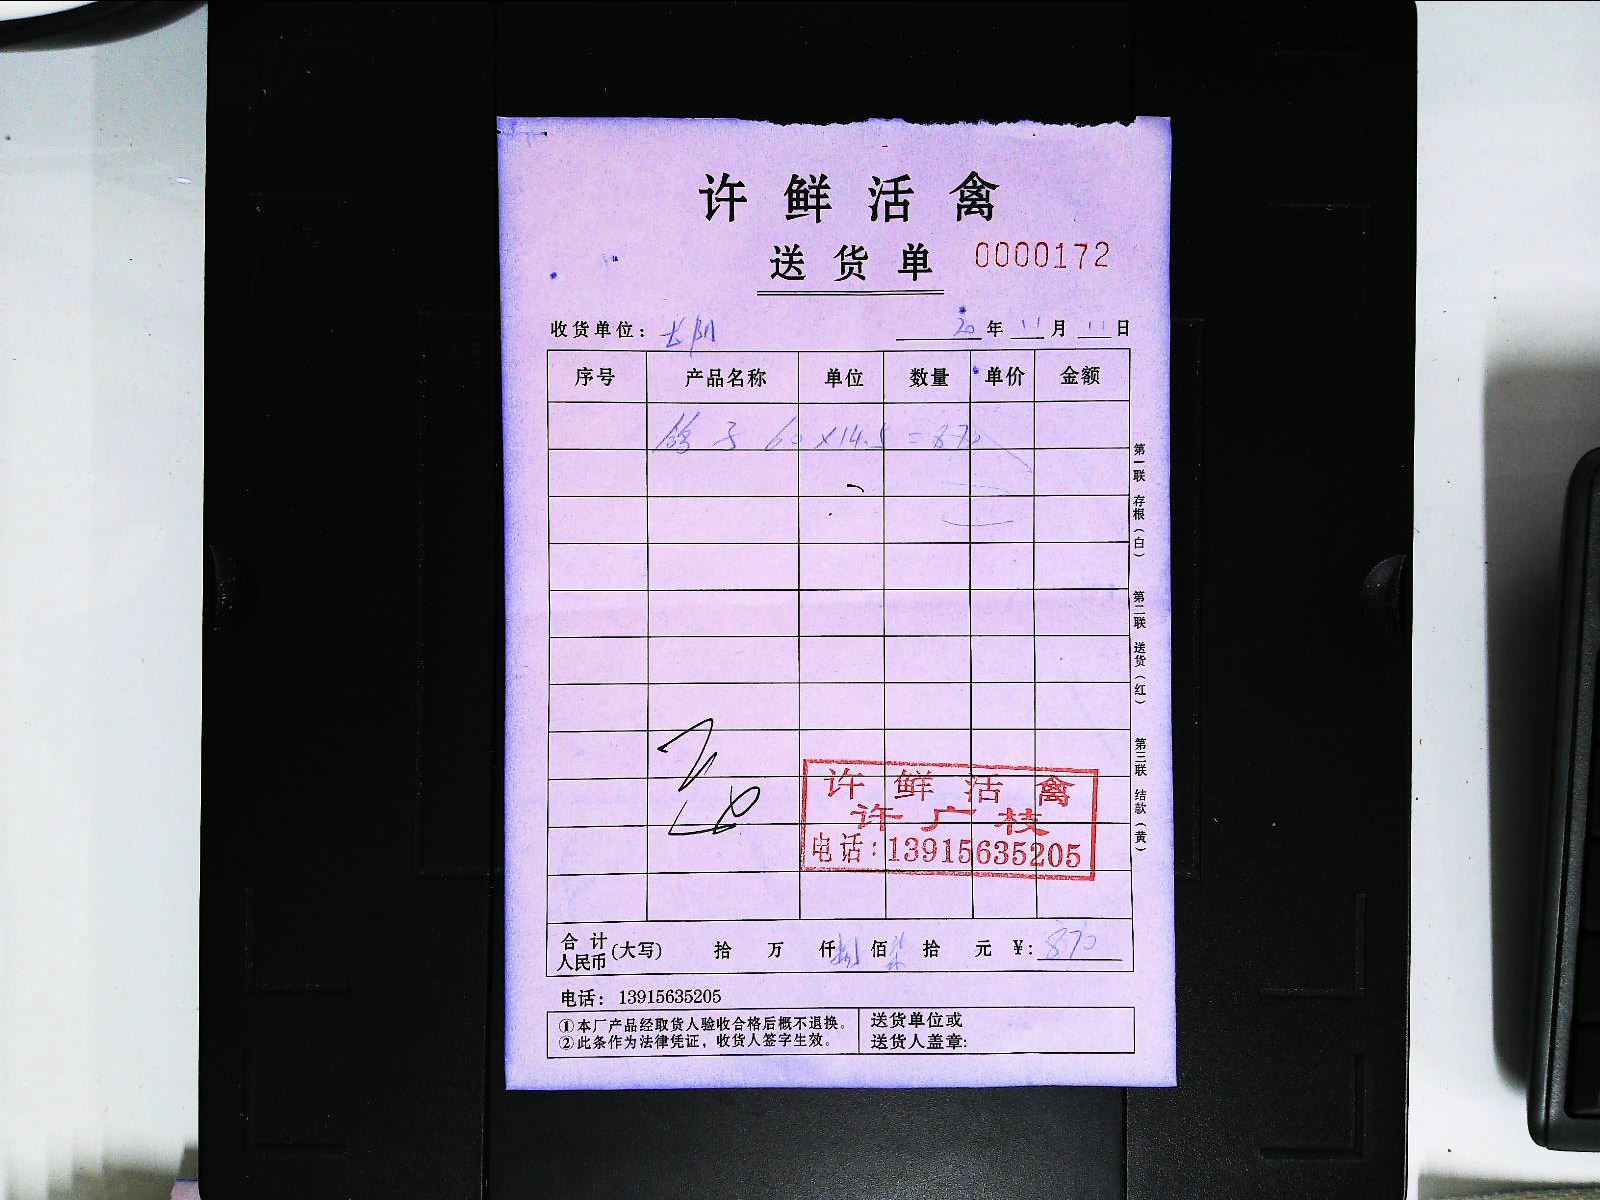 许鲜活禽
送货单 0000172
收货单位： 20年 11月 11日
序号 产品名称 单位 数量 单价 金额
鸽子 60×14.5=870
第一联 存根（白）
第二联 送货（红）
第三联 结款（黄）
许鲜活禽
许广枝
电话：13915635205
合计人民币(大写) 拾 万 仟 捌佰 柒拾 元 ¥：870
电话： 13915635205
①本厂产品经取货人验收合格后概不退换。
②此条作为法律凭证，收货人签字生效。
送货单位或
送货人盖章: